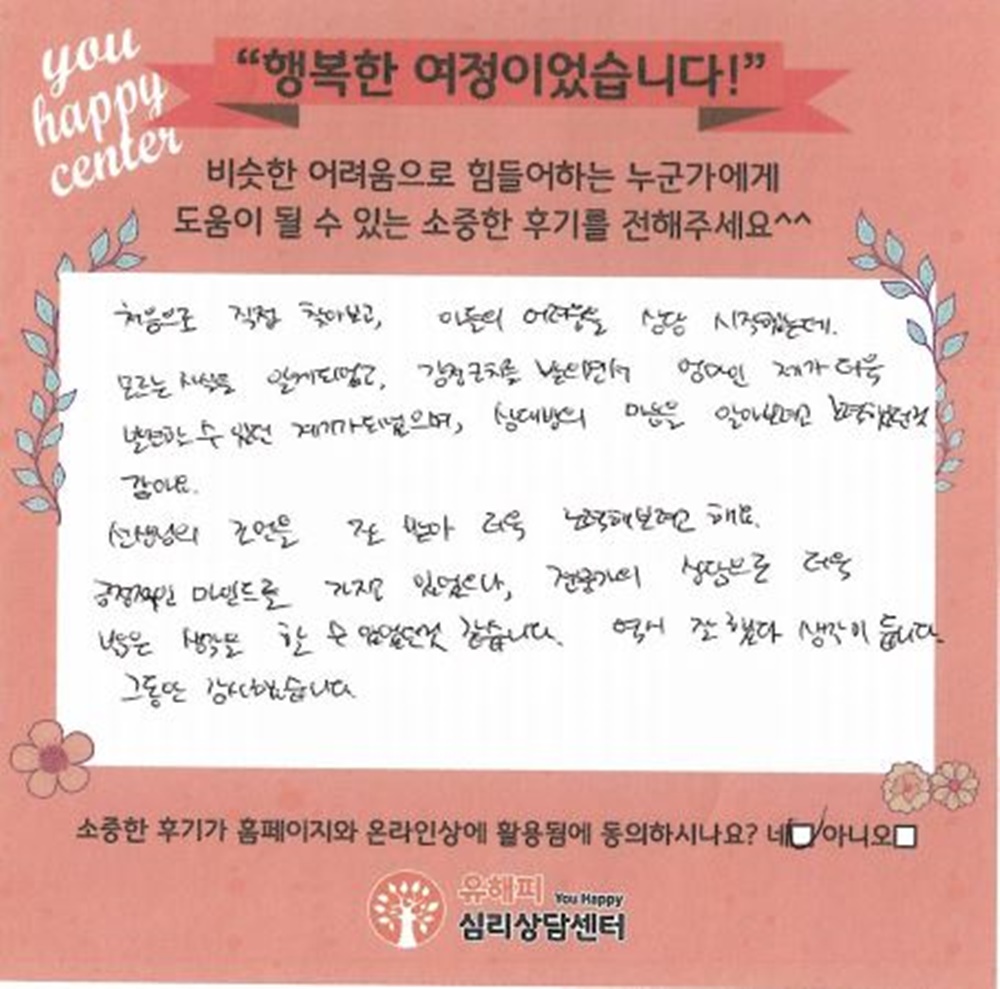 you
happy
center
“행복한 여정이었습니다!”
비슷한 어려움으로 힘들어하는 누군가에게
도움이 될 수 있는 소중한 후기를 전해주세요^^
처음으로 직접 찾아보고, 아들의 어려움을 상담 시작했는데.
모르는 지식을 알게되었고, 감정코치를 받으면서 엄마인 제가 더욱
발전할 수 있던 계기가 되었으며, 상대방의 마음을 알아보려고 노력했던것
같아요.
선생님의 조언을 잘 받아 더욱 노력해보려고 해요.
긍정적인 마인드를 가지고 있었으나, 전문가의 상담으로 더욱
밝은 생각을 할 수 있었던것 같습니다. 역시 잘 했다 생각이 듭니다.
그동안 감사했습니다.
소중한 후기가 홈페이지와 온라인상에 활용됨에 동의하시나요? 네 아니오
유해피 You Happy
심리상담센터